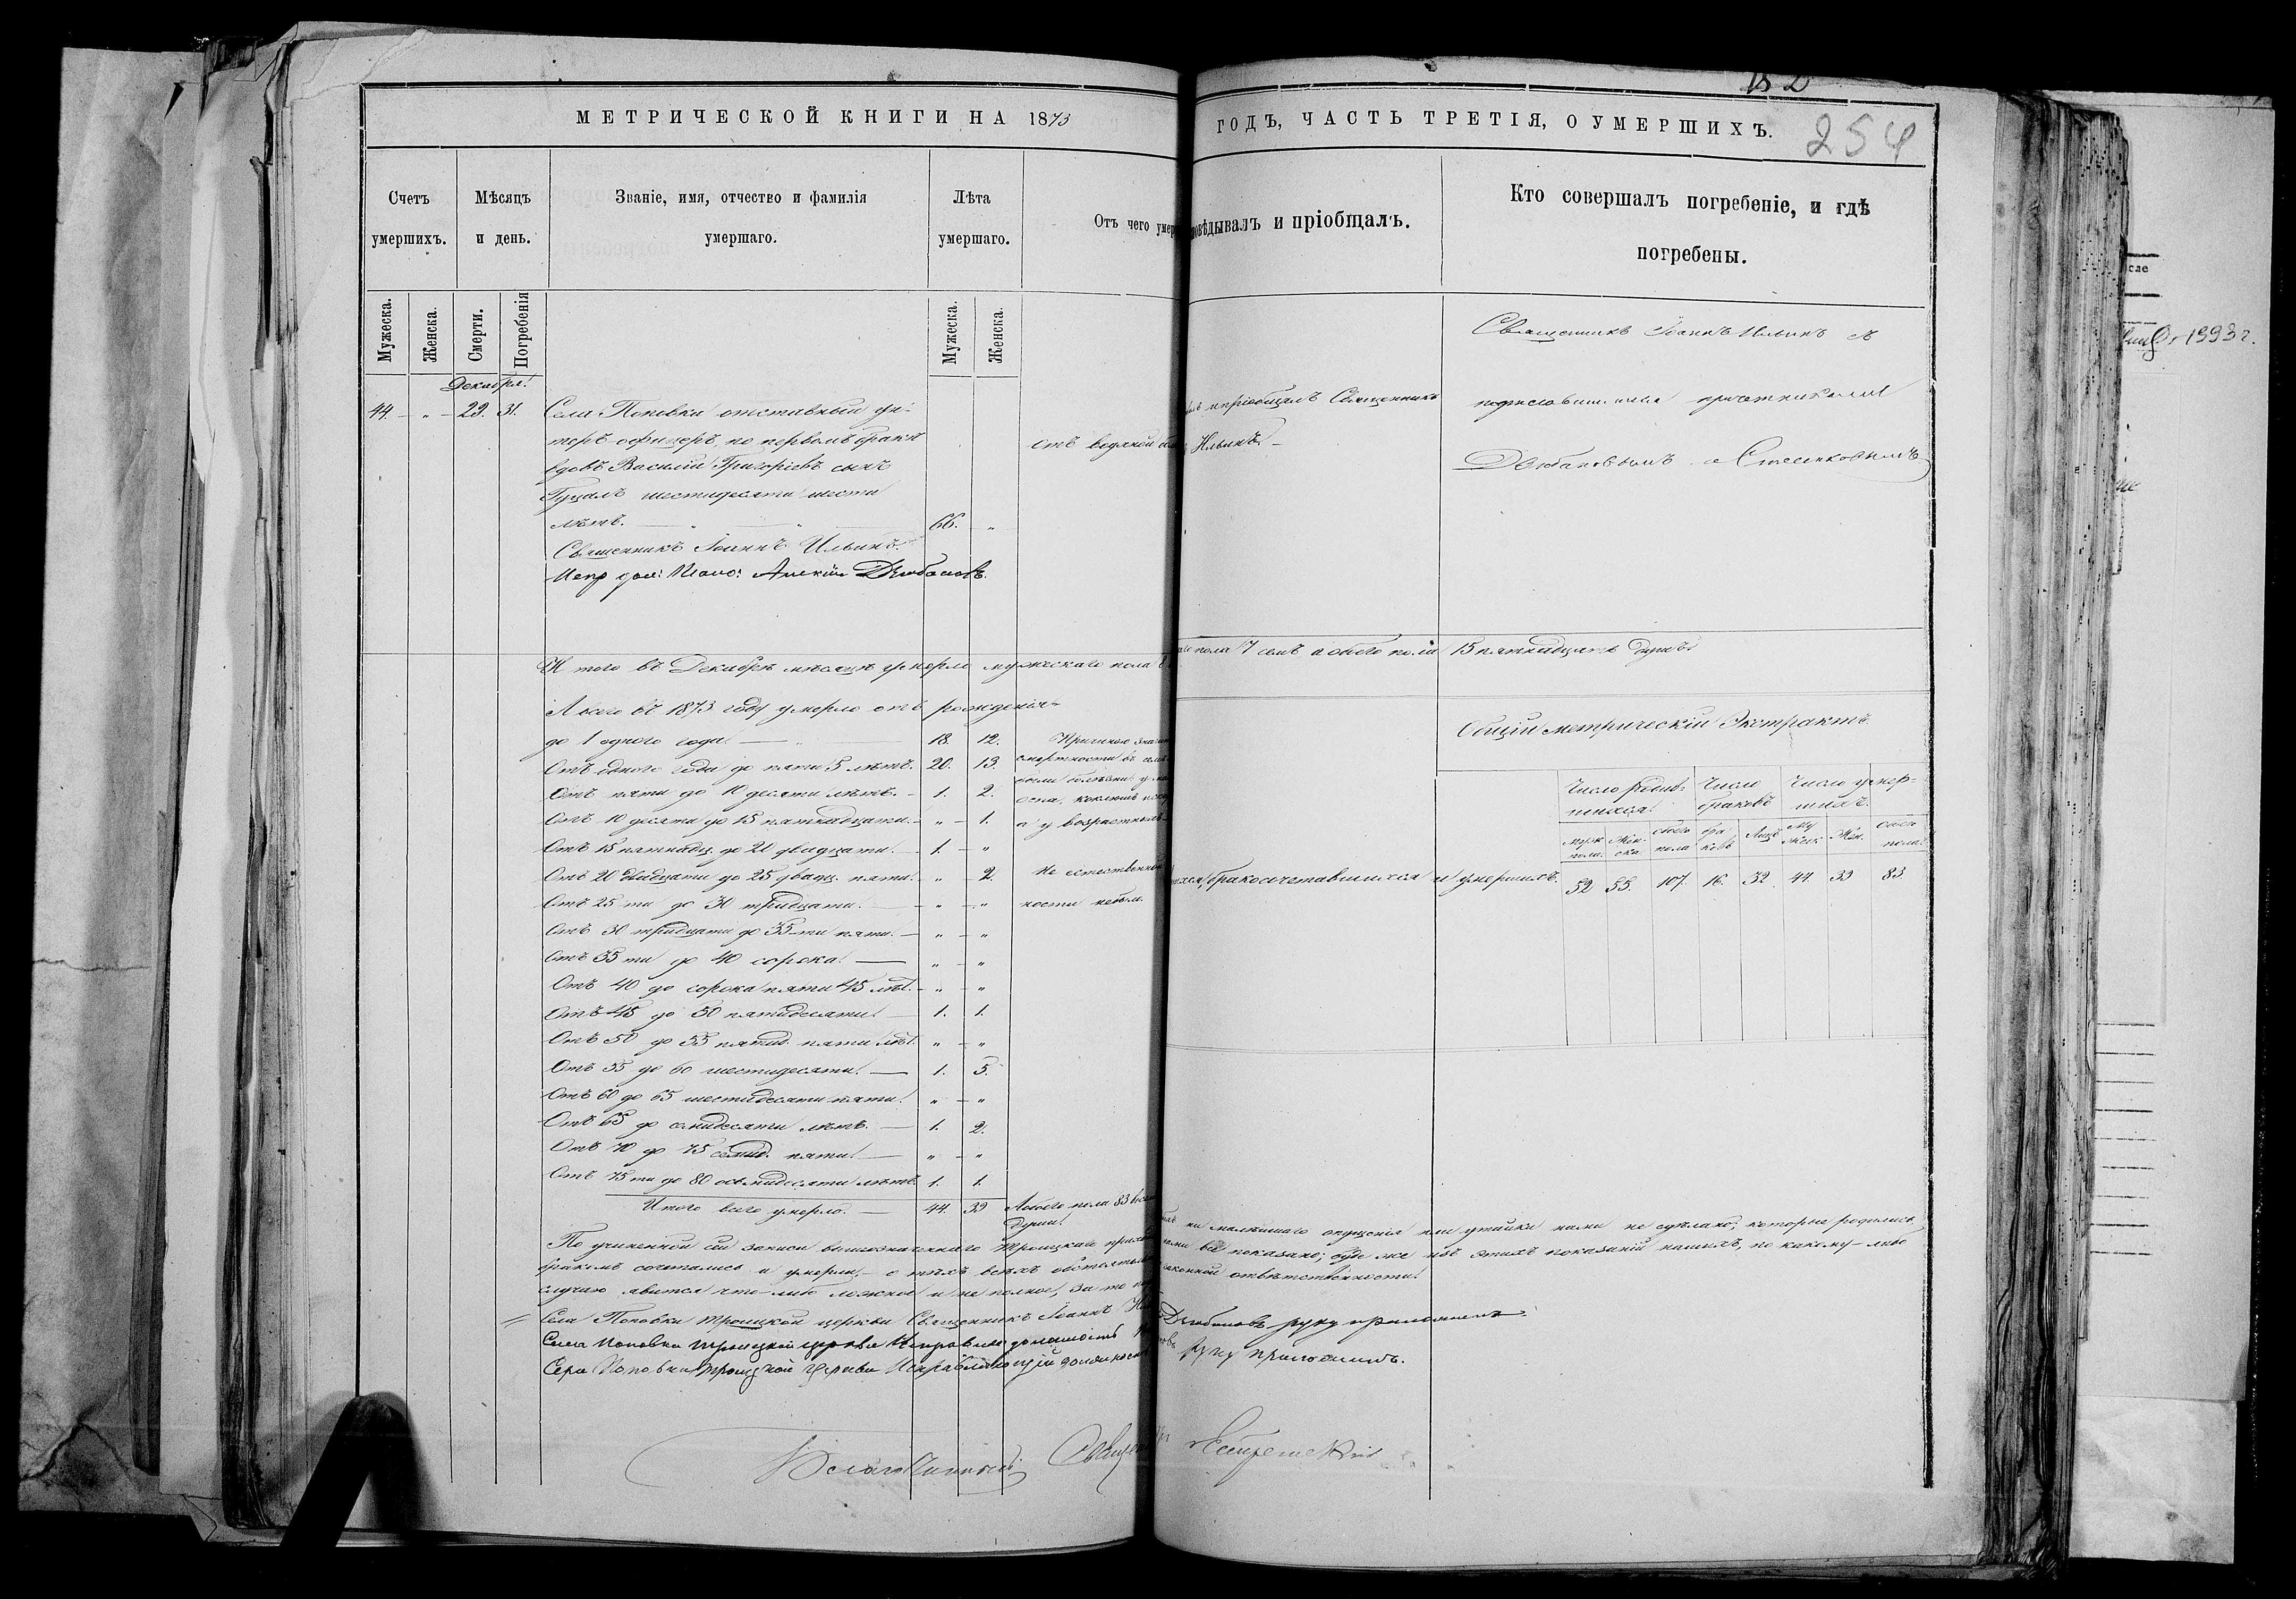 МЕТРИЧЕСКОЙ КНИГИ НА 1873
ГОДЪ, ЧАСТЬ ТРЕТІЯ, О УМЕРШИХЪ.
254
Счетъ умершихъ.
Мѣсяцъ и день.
Званіе, имя, отчество и фамилія умершаго.
Лѣта умершаго.
Отъ чего умер
повѣдывалъ и пріобщалъ.
Кто совершалъ погребеніе, и гдѣ погребены.
Мужеска.
Женска.
Смерти.
Погребенія
Мужеска.
Женска.
Декабря
44. " 29. 31.
Села Поповки отставный ун-
теръ-офицеръ, по первомъ бракѣ
вдовъ Василій Григорьевъ сынъ
шестидесяти шести
лѣтъ. 66. "
отъ водяной
и пріобщалъ Священникъ
Ильинъ
Священникъ Іоаннъ Ильинъ съ
причетниками
Дембановымъ и
Священникъ Іоаннъ Ильинъ.
Испр дол: Алексѣй
И того въ Декабрѣ мѣсяцѣ умерло мужескаго пола 8
пола 7 семь а обоего пола 15 пятнадцать душъ
А всего въ 1873 году умерло отъ рожденія
до 1 одного года 18. 12.
Отъ одного года до пяти 5 лѣтъ. 20. 13.
Отъ пяти до 10 десяти лѣтъ. 1. 2.
Отъ 10 десяти до 15 пятнадцати. " 1.
Отъ 15 пятнадц. до 20 двадцати. 1. "
Отъ 20 двадцати до 25 двадц. пяти. " 2.
Отъ 25 ти до 30 тридцати. " "
Отъ 30 тридцати до 35-ти пяти. " "
Отъ 35 ти до 40 сорока. " "
Отъ 40 до сорока пяти 45 лѣт. " "
Отъ 45 до 50 пятидесяти. 1. 1.
Отъ 50 до 55 пятид. пяти лѣт. " "
Отъ 55 до 60 шестидесяти. 1. 5.
Отъ 60 до 65 шестидесяти пяти. " "
Отъ 65 до семидесяти лѣтъ. 1. 2.
Отъ 70 до 75 семид. пяти. " "
Отъ 75 ти до 80 осьмидесяти лѣтъ. 1. 1.
Итого всего умерло. 44. 39
А обоего пола 83
души.
Причиною
смертности въ
были болѣзни: у
оспа, коклюшъ
а у возрастныхъ
Не естественной
ности небыло.
Общій метрическій Экстрактъ
бракосочетавшихся и умершихъ.
Число родив-шихся.
Число браковъ
Число умер-шихъ.
Муж. пола. Жен-ска. обоего пола бра-ковъ Лицъ Му жеск. Жен. обоего пола.
52 55. 107. 16. 32. 44. 39 83.
По учиненной сей записи вышеозначеннаго Троицкаго
ни малѣйшаго опущенія или утайки нами не сдѣлано; которые родились,
бракомъ сочетались и умерли,— о тѣхъ всѣхъ обстоятель
все показано; буде же изъ этихъ показаній нашихъ, по какому-либо
случаю явится что-либо ложное и не полное, за то
законной отвѣтственности.
Села Поповки Троицкой церкви Священникъ Іоаннъ
Села Поповки Троицкой церкви Исправляю должность
руку приложилъ
Села Поповки Троицкой Церкви Исправляющій должность
руку приложилъ.
Благочинный Священ